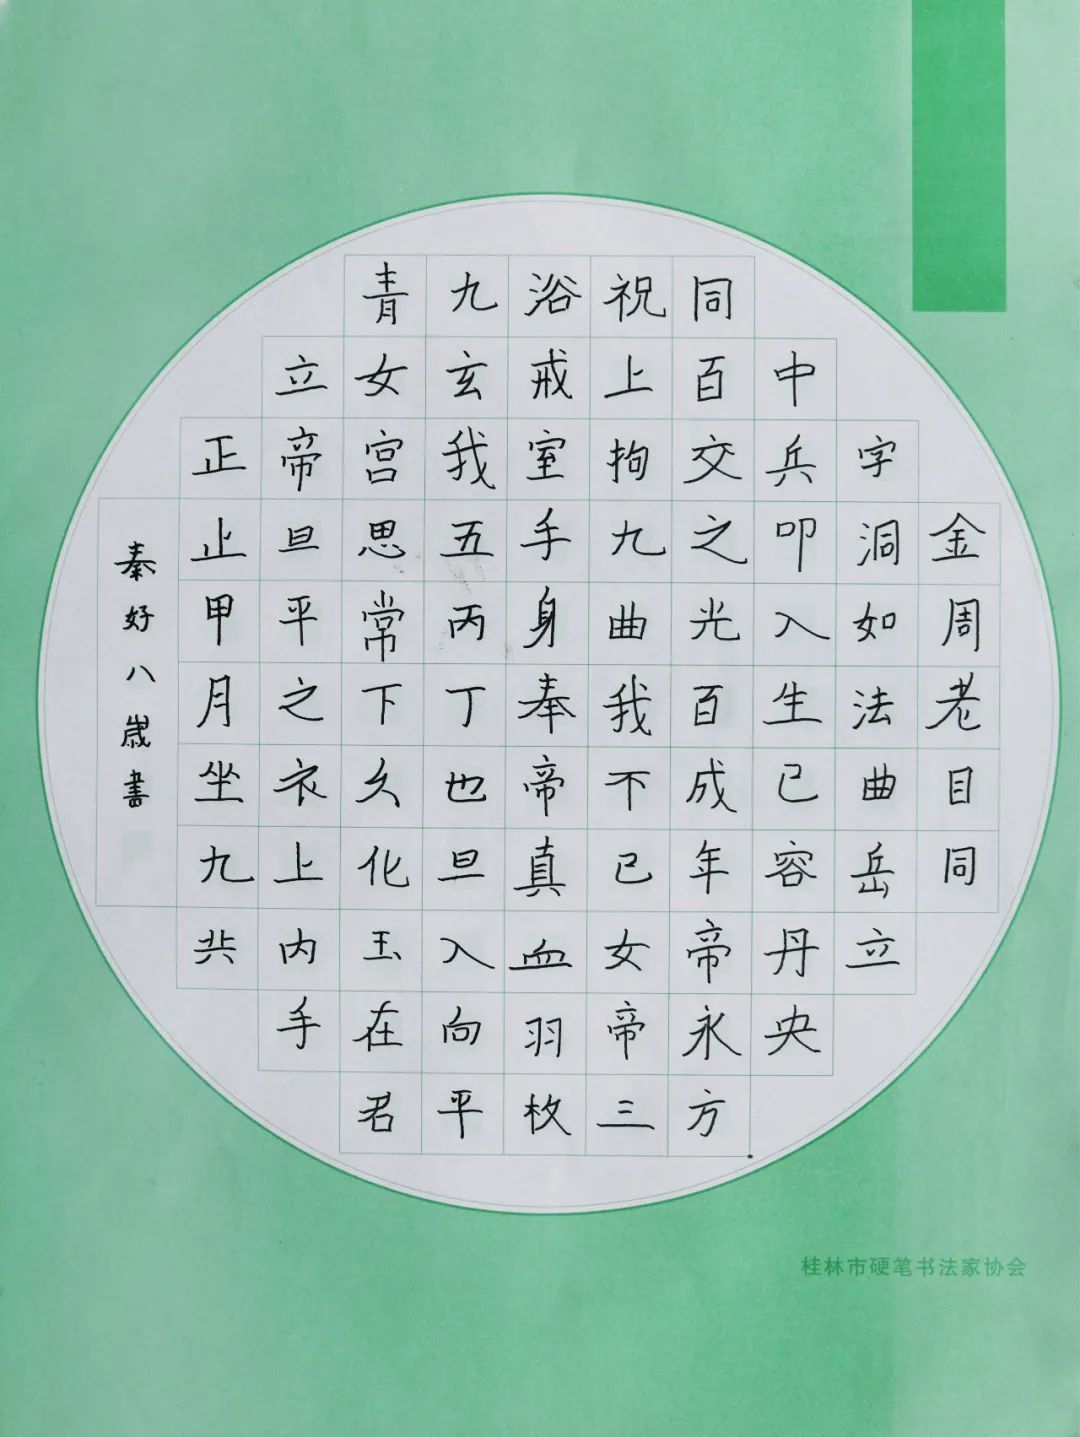 金周老目同
字洞如法曲岳立
中兵叩入生已容丹央
同百交之光百成年帝永方
祝上拘九曲我不已女帝三
浴戒室手身奉帝真血羽枚
九玄我五丙丁也旦入向平
青女宫思常下久化玉在君
立帝旦平之衣上内手
正止甲月坐九共
秦好八歳書
桂林市硬笔书法家协会